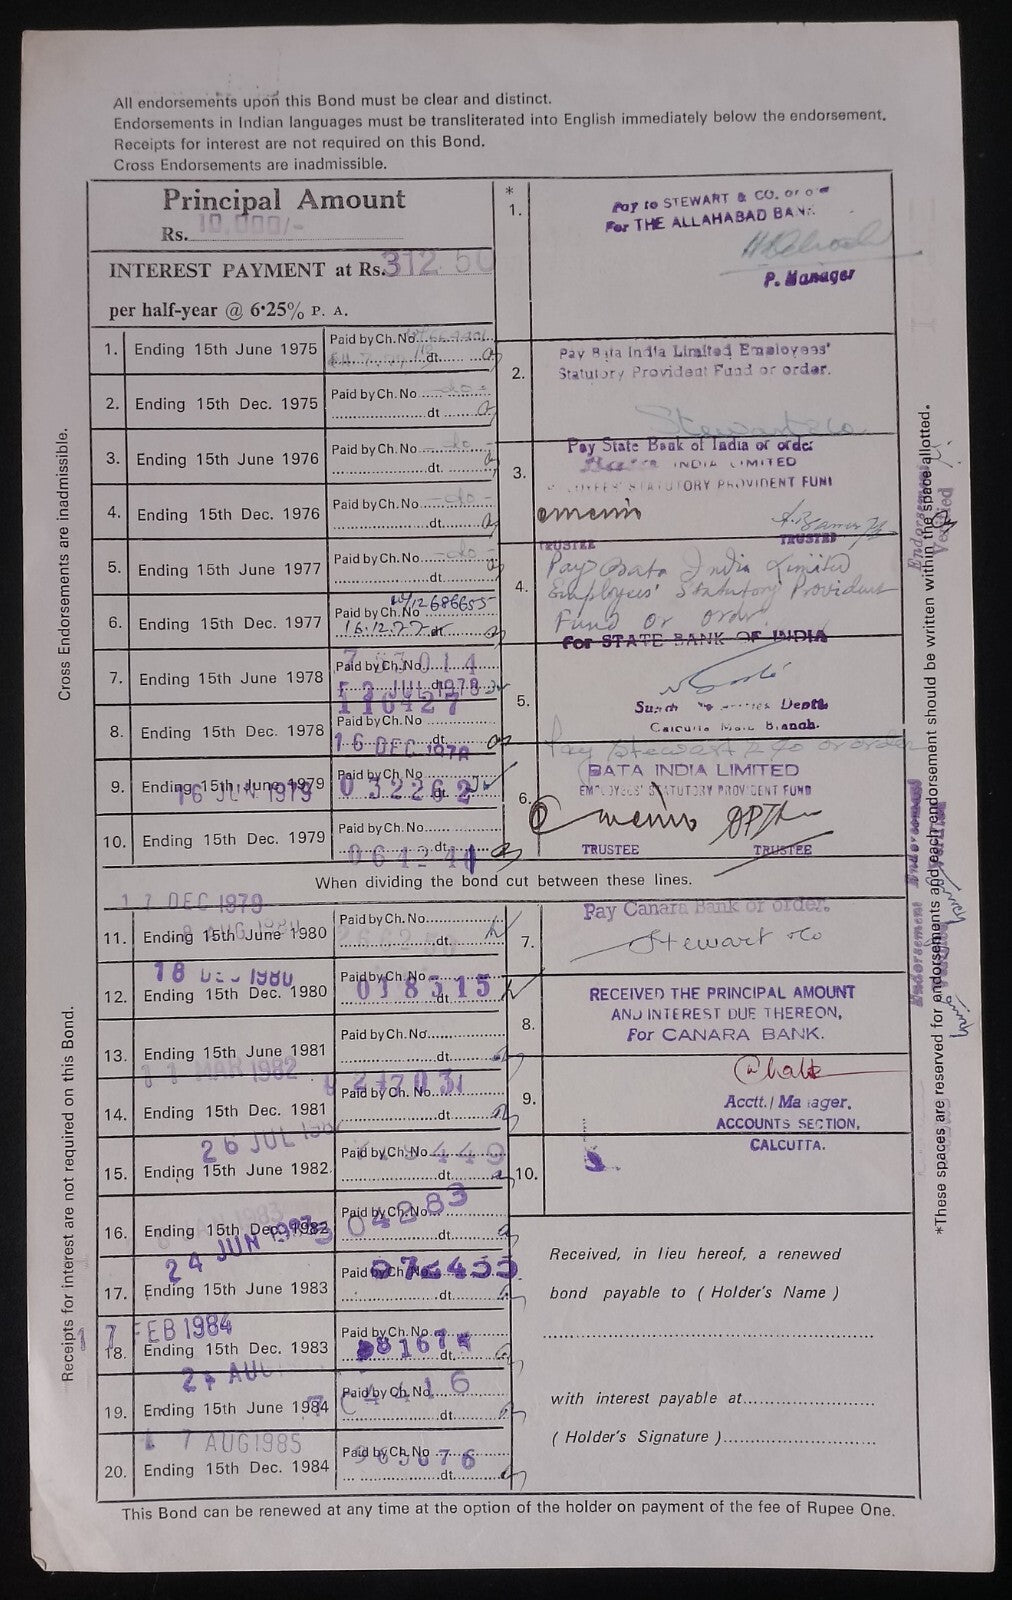 All endorsements upon this Bond must be clear and distinct.
Endorsements in Indian languages must be transliterated into English immediately below the endorsement.
Receipts for interest are not required on this Bond.
Cross Endorsements are inadmissible.
Principal Amount
Rs. 10,000/-
INTEREST PAYMENT at Rs. 312 50
per half-year @ 6·25% P. A.
1. Ending 15th June 1975 Paid by Ch. No
dt.
2. Ending 15th Dec. 1975 Paid by Ch. No -do-
dt
3. Ending 15th June 1976 Paid by Ch. No -do-
dt.
4. Ending 15th Dec. 1976 Paid by Ch. No -do-
dt.
5. Ending 15th June 1977 Paid by Ch. No -do-
dt.
6. Ending 15th Dec. 1977 Paid by Ch. No 12686655
16.12.77 dt.
7. Ending 15th June 1978 Paid by Ch. No
JUL 1978 dt.
116427
8. Ending 15th Dec. 1978 Paid by Ch. No
16 DEC 1978 dt.
9. Ending 15th June 1979 Paid by Ch. No
16 JUN 1979 032262 dt.
10. Ending 15th Dec. 1979 Paid by Ch. No
dt.
When dividing the bond cut between these lines.
17 DEC 1979
11. Ending 15th June 1980 Paid by Ch. No
dt.
18 DEC 1980
12. Ending 15th Dec. 1980 Paid by Ch. No
018315 dt.
13. Ending 15th June 1981 Paid by Ch. No
dt.
11 MAR 1982
14. Ending 15th Dec. 1981 Paid by Ch. No
dt.
26 JUL
15. Ending 15th June 1982 Paid by Ch. No
dt.
16. Ending 15th Dec. 1982 Paid by Ch. No 04283
dt.
24 JUN
17. Ending 15th June 1983 Paid by Ch. No
dt.
17 FEB 1984
18. Ending 15th Dec. 1983 Paid by Ch. No
dt.
AUG
19. Ending 15th June 1984 Paid by Ch. No
dt.
17 AUG 1985
20. Ending 15th Dec. 1984 Paid by Ch. No
dt.
*
1. Pay to STEWART & CO. or
For THE ALLAHABAD BANK
P. Manager
2. Pay Bata India Limited Employees'
Statutory Provident Fund or order.
Stewart & Co
3. Pay State Bank of India or order
INDIA LIMITED
STATUTORY PROVIDENT FUND
TRUSTEE
TRUSTEE
4. Pay Bata India Limited
Employees' Statutory Provident
Fund or order
For STATE BANK OF INDIA
5.
Depth
Calcutta Main Branch.
Pay Stewart & Co or order
6. BATA INDIA LIMITED
EMPLOYEES' STATUTORY PROVIDENT FUND
TRUSTEE
TRUSTEE
7. Pay Canara Bank or order.
Stewart & Co
8. RECEIVED THE PRINCIPAL AMOUNT
AND INTEREST DUE THEREON,
For CANARA BANK.
9. Acctt./Manager,
ACCOUNTS SECTION,
CALCUTTA.
10.
Received, in lieu hereof, a renewed
bond payable to ( Holder's Name )
with interest payable at
( Holder's Signature )
This Bond can be renewed at any time at the option of the holder on payment of the fee of Rupee One.
Cross Endorsements are inadmissible.
Receipts for interest are not required on this Bond.
*These spaces are reserved for endorsements and each endorsement should be written within the space allotted.
Endorsement
Verified
Endorsement
Endorsement